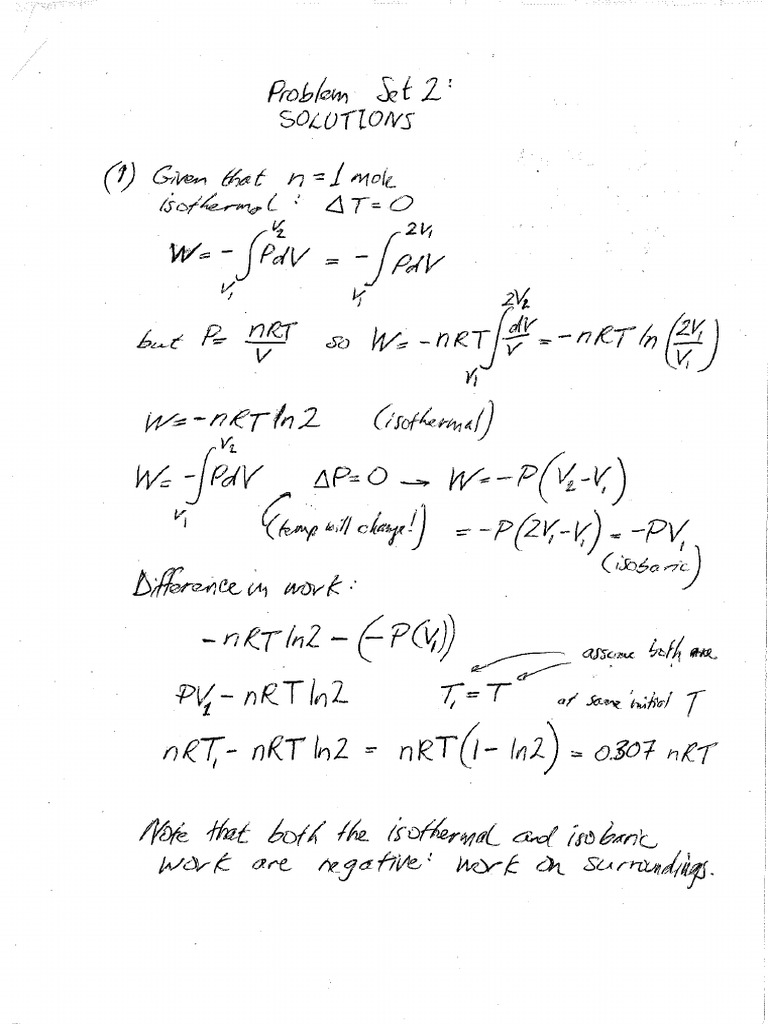 Problem Set 2:
SOLUTIONS
(1) Given that n = 1 mole
isothermal: ΔT = 0
W = -∫_{V₁}^{V₂} PdV = -∫_{V₁}^{2V₁} PdV
but P = nRT/V so W = -nRT ∫_{V₁}^{2V₂} dV/V = -nRT ln(2V₁/V₁)
W = -nRT ln 2 (isothermal)
W = -∫_{V₁}^{V₂} PdV ΔP = 0 → W = -P(V₂-V₁)
(temp will change!) = -P(2V₁-V₁) = -PV₁
(isobaric)
Difference in work:
-nRT ln2 - (-P(V₁))
assume both are
PV₁ - nRT ln2 T₁ = T at same initial T
nRT₁ - nRT ln2 = nRT(1 - ln2) = 0.307 nRT
Note that both the isothermal and isobaric
work are negative: work on surroundings.